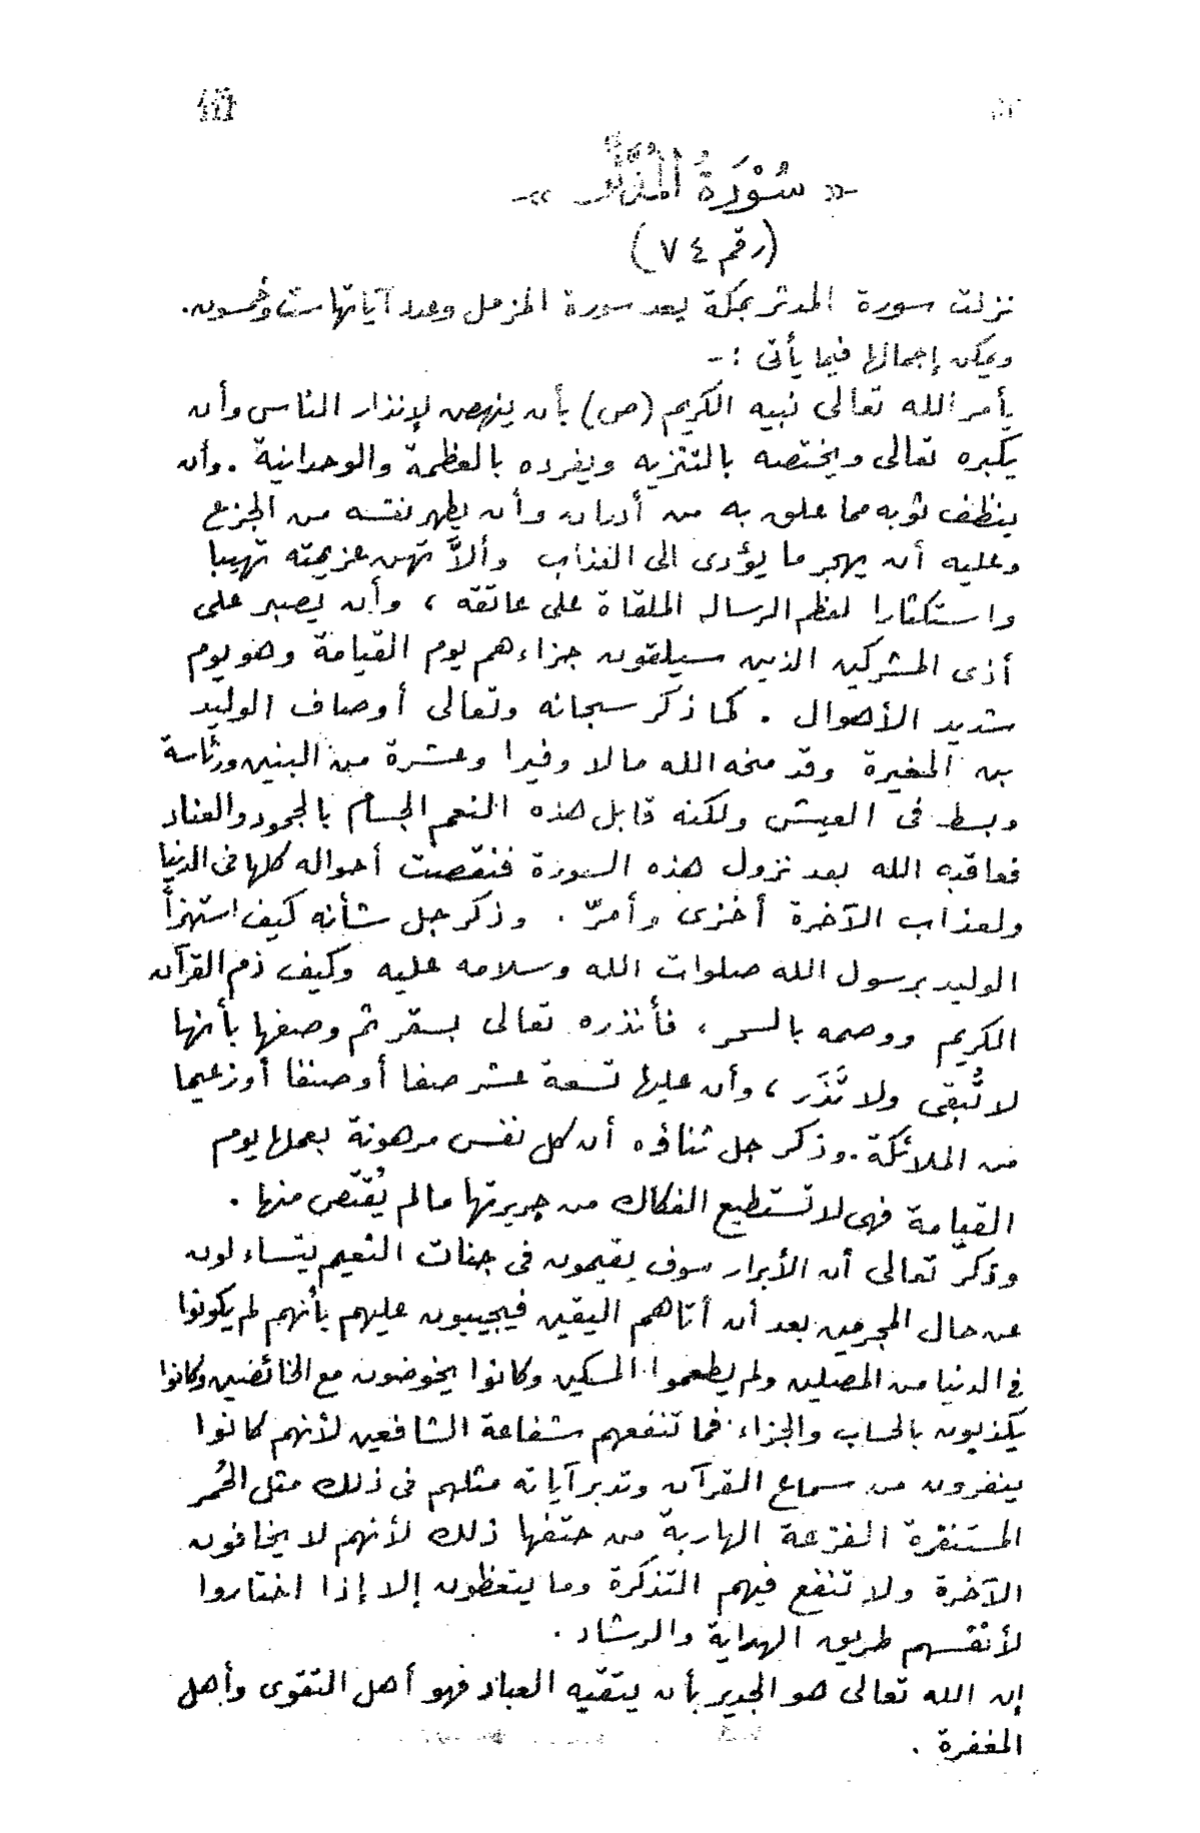 -« سُوْرَةُ المُدَّثِّر »-
(رقم ٧٤)
نزلت سورة المدثر بمكة بعد سورة المزمل وعدد آياتها ست وخمسون.
ويمكن إجمالها فيما يأتى :-
يأمر الله تعالى نبيه الكريم (ص) بأن ينهض لإنذار الناس وأن
يكبره تعالى ويختصه بالتنزيه ويفرده بالعظمة والوحدانية . وأن
ينظف ثوبه مما علق به من أدران وأن يطهر نفسه من الجزع
وعليه أن يهجر ما يؤدى الى العذاب وألاَّ تهن عزيمته تهيبا
واستكثارا لعظم الرسالة الملقاة على عاتقه ، وأن يصبر على
أذى المشركين الذين سيلقون جزاءهم يوم القيامة وهو يوم
شديد الأهوال . كما ذكر سبحانه وتعالى أوصاف الوليد
بن المغيرة وقد منحه الله مالا وفيرا وعشرة من البنين ورئاسة
وبسط فى العيش ولكنه قابل هذه النعم الجسام بالجمود والعناد
فعاقبه الله بعد نزول هذه السورة فنقصت أحواله كلها فى الدنيا
ولعذاب الآخرة أخزى وأمرّ . وذكر جل شأنه كيف استهزأ
الوليد برسول الله صلوات الله وسلامه عليه وكيف ذم القرآن
الكريم ووصمه بالسحر ، فأنذره تعالى بسقر ثم وصفها بأنها
لا تُبقى ولا تَذَر ، وأن عليها تسعة عشر صفا أو صنفا أو زعيما
من الملائكة . وذكر جل ثناؤه أن كل نفس مرهونة بعملها يوم
القيامة فهى لا تستطيع الفكاك من جريرتها مالم يُقتص منها .
وذكر تعالى أن الأبرار سوف يقيمون فى جنات النعيم يتساءلون
عن حال المجرمين بعد أن أتاهم اليقين فيجيبون عليهم بأنهم لم يكونوا
فى الدنيا من المصلين ولم يطعموا المسكين وكانوا يخوضون مع الخائضين وكانوا
يكذبون بالحساب والجزاء فما تنفعهم شفاعة الشافعين لأنهم كانوا
ينفرون من سماع القرآن وتدبر آياته مثلهم فى ذلك مثل الحُمر
المستنفرة الفزعة الهاربة من حتفها ذلك لأنهم لا يخافون
الآخرة ولا تنفع فيهم التذكرة وما يتعظون إلا إذا اختاروا
لأنفسهم طريق الهداية والرشاد .
إن الله تعالى هو الجدير بأن يتقيه العباد فهو أهل التقوى وأهل
المغفرة .